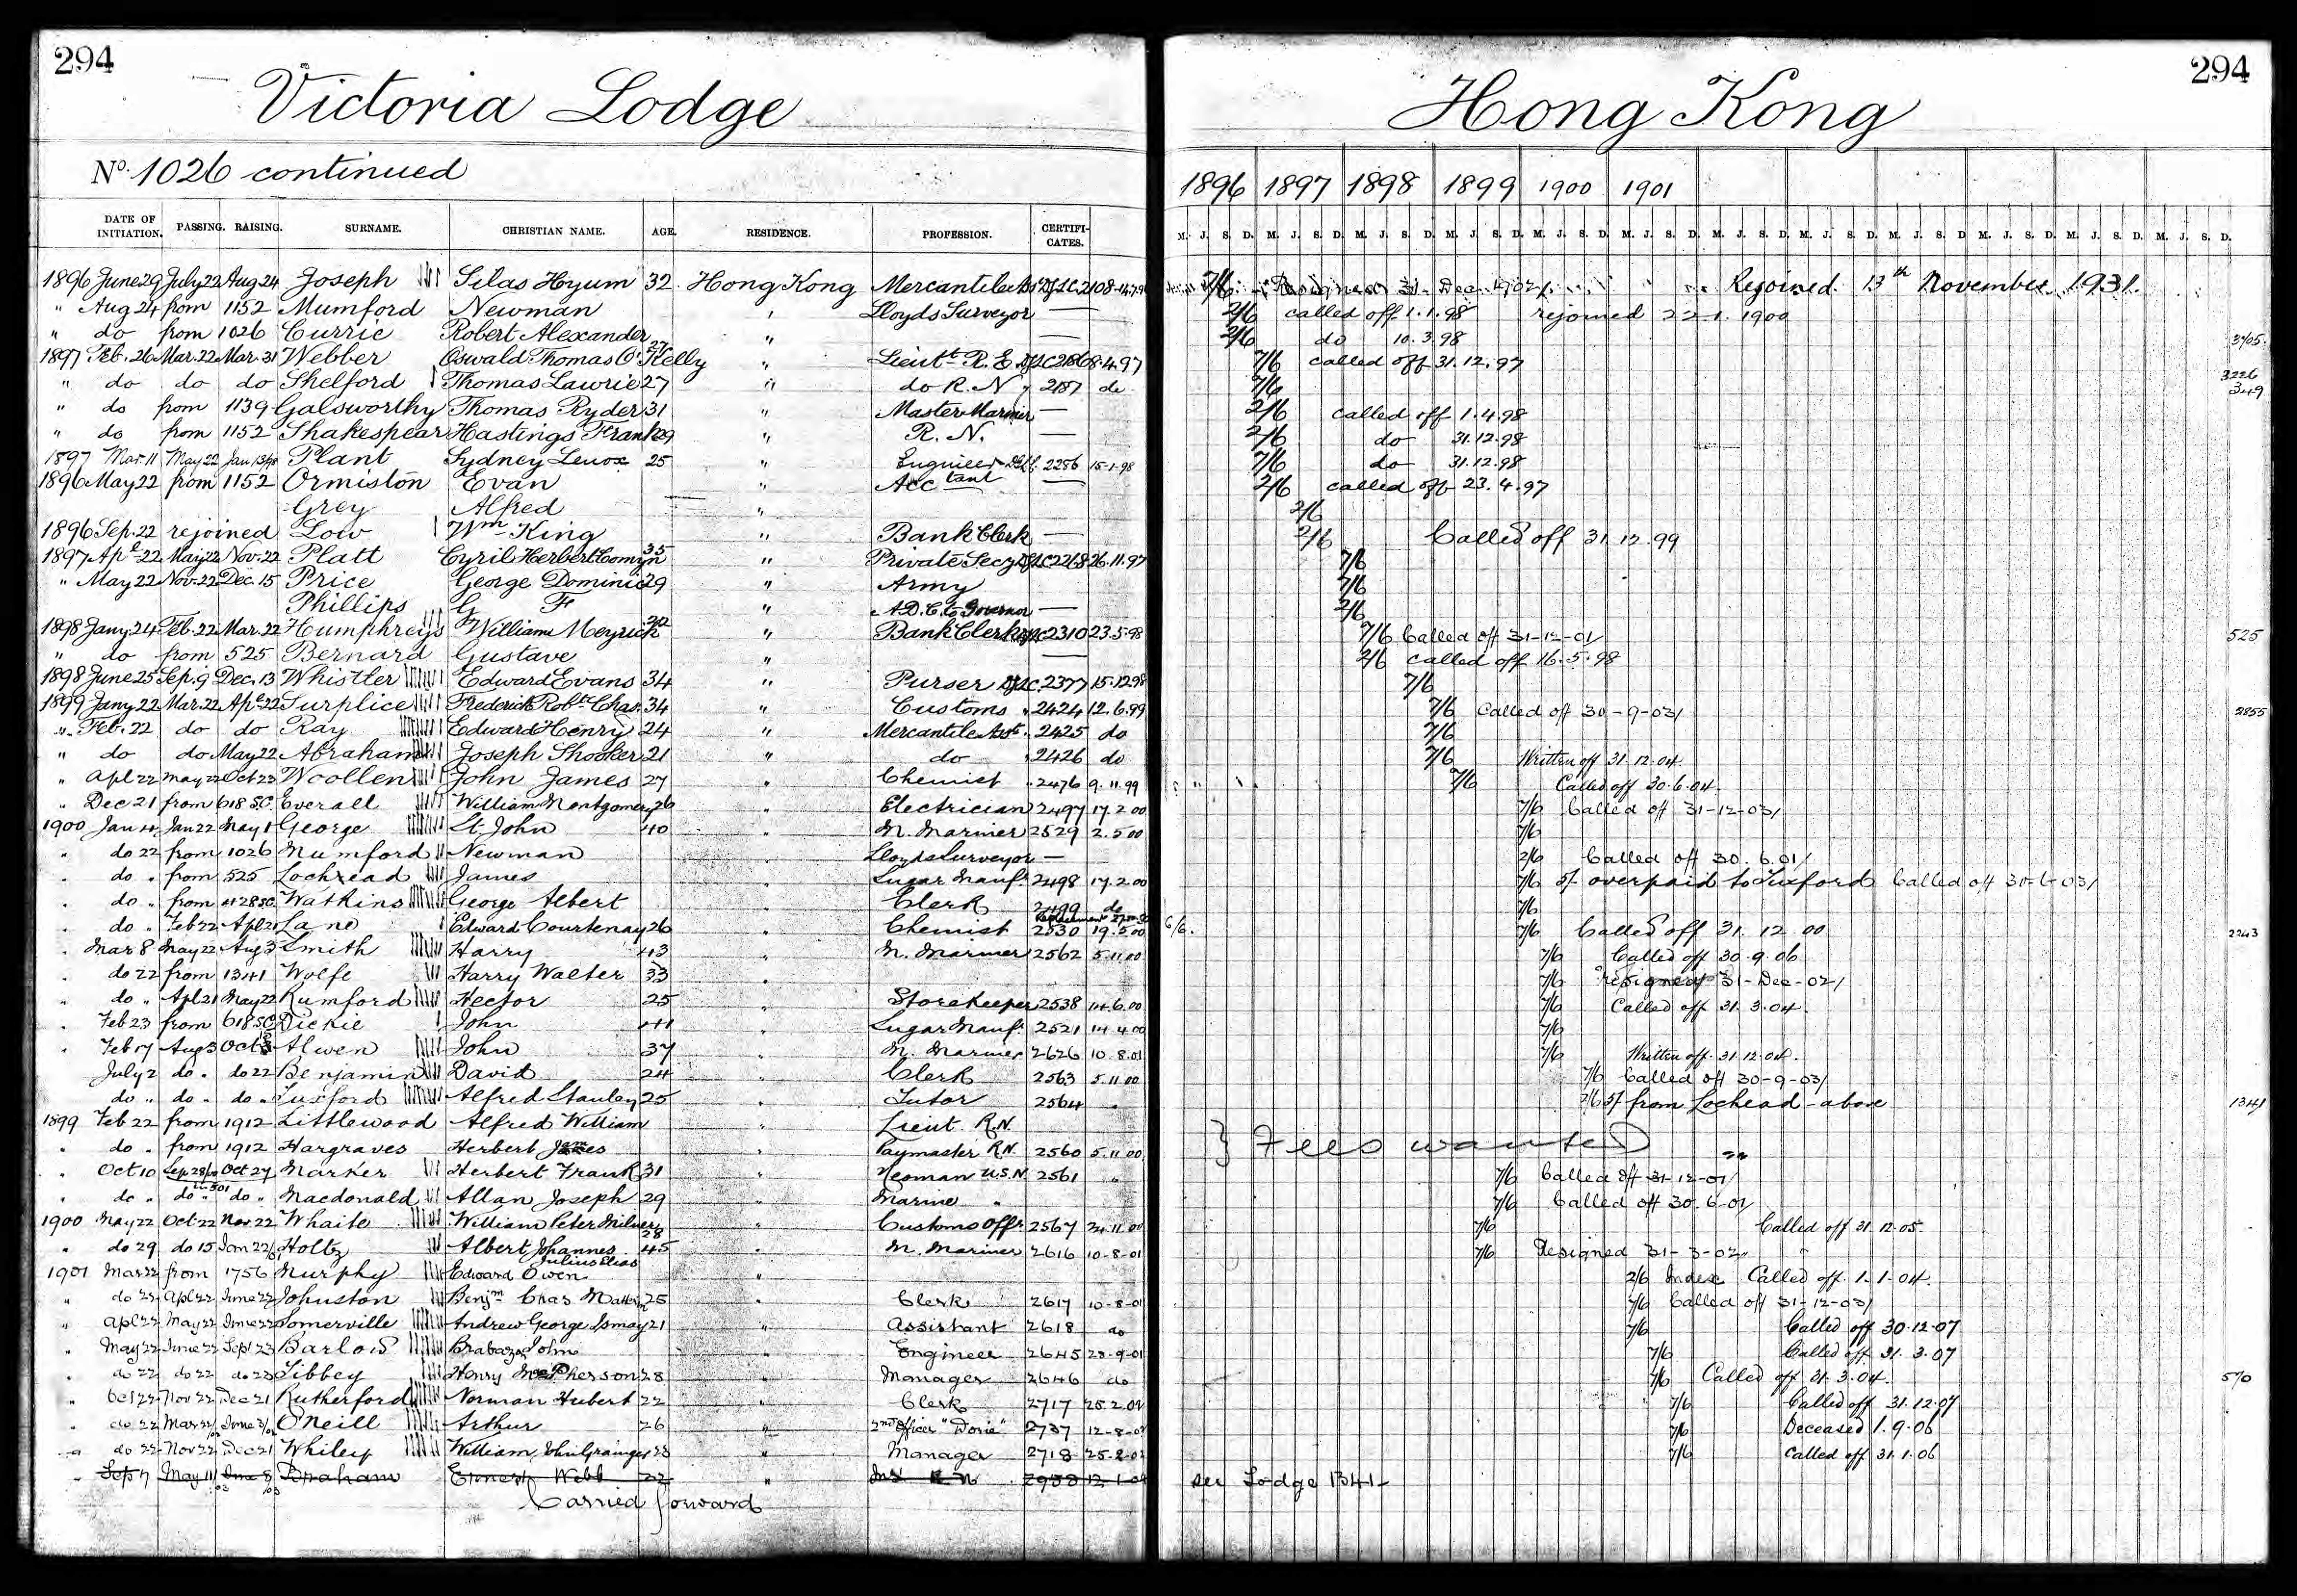 294 294
Victoria Lodge Hong Kong
No. 1026 continued
1896 1897 1898 1899 1900 1901
DATE OF INITIATION. PASSING. RAISING. SURNAME. CHRISTIAN NAME. AGE. RESIDENCE. PROFESSION. CERTIFI-CATES. M. J. S. D. M. J. S. D. M. J. S. D. M. J. S. D. M. J. S. D. M. J. S. D. M. J. S. D. M. J. S. D. M. J. S. D. M. J. S. D. M. J. S. D. M. J. S. D.
1896 June 29 July 22 Aug 24 Joseph Silas Hyum 32 Hong Kong Mercantile 2108 7/6 Resigned 31 Dec Rejoined 13th November 1931
" Aug 24 from 1152 Mumford Newman " Lloyds Surveyor — 2/6 called off 1.1.98 rejoined 22 1. 1900
" do from 1026 Currie Robert Alexander " — 2/6 do 10.3.98
1897 Feb. 26 Mar. 22 Mar. 31 Webber Oswald Thomas O'Kelly 27 " Lieutt. R.E. 2186 8.4.97 7/6 called off 31.12.97
" do do do Shelford Thomas Lawrie 27 " do R.N. 2187 do 7/6 3226
" do from 1139 Galsworthy Thomas Ryder 31 " Master Mariner — 2/6 called off 1.4.98 349
" do from 1152 Shakespear Hastings Frank 29 " R.N. — 2/6 do 31.12.98
1897 Mar. 11 May 22 Jan 13/98 Plant Sydney Lenox 25 " Engineer 2286 15-1-98 7/6 do 31.12.98
1896 May 22 from 1152 Ormiston Evan " Acctant — 2/6 called off 23.4.97
Grey Alfred " 2/6
1896 Sep. 22 rejoined Low Wm. King " Bank Clerk — 2/6 Called off 31.12.99
1897 Apl 22 May 22 Nov. 22 Platt Cyril Herbert Comyn 35 " Private Secy 2268 26.11.97 7/6
" May 22 Nov. 22 Dec. 15 Price George Dominic 29 " Army 7/6
Phillips G F " A.D.C. to Governor — 2/6
1898 Jany. 24 Feb. 22 Mar. 22 Humphreys William Meyrick " Bank Clerk 2310 23.5.98 7/6 Called off 31-12-01 525
" do from 525 Bernard Gustave " — 2/6 called off 16.5.98
1898 June 25 Sep. 9 Dec. 13 Whistler Edward Evans 34 " Purser 2377 15.12.98 7/6
1899 Jany 22 Mar. 22 Apl. 22 Surplice Frederick Robt. Chas. 34 " Customs 2424 12.6.99 7/6 Called off 30-9-03 2855
" Feb. 22 do do Ray Edward Henry 24 " Mercantile Asst. 2425 do 7/6
" do do May 22 Abraham Joseph Shooker 21 " do 2426 do 7/6 Written off 31.12.04
" Apl 22 May 22 Oct 23 Woollen John James 27 " Chemist 2476 9.11.99 7/6 Called off 30.6.04.
" Dec 21 from 618 S.C. Everall William Montgomery 26 " Electrician 2497 17.2.00 7/6 Called off 31-12-03
1900 Jan 4 Jan 22 May 1 George St. John 40 " M. Mariner 2529 2.5.00 7/6
" do 22 from 1026 Mumford Newman " Lloyds Surveyor — 2/6 Called off 30.6.01
" do " from 525 Lochead James " Sugar Manufr. 2498 17.2.00 7/6 5/- overpaid to Luxford Called off 30-6-03
" do " from 428 SC Watkins George Albert " Clerk 2499 do 7/6
" do " Feb 22 Apl 21 Lane Edward Courtenay 26 " Chemist 2530 19.5.00 6/6. 7/6 Called off 31.12.00 2243
" Mar 8 May 22 Aug 3 Smith Harry 43 " M. Mariner 2562 5.11.00 7/6 Called off 30.9.06
" do 22 from 1341 Wolfe Harry Walter 33 " 7/6 resigned 31-Dec-02
" do " Apl 21 May 22 Rumford Hector 25 " Storekeeper 2538 14.6.00 7/6 Called off 31.3.04.
" Feb 23 from 618 SC Dickie John 41 " Sugar Manufr. 2521 14.4.00 7/6
" Feb 17 Aug 3 Oct Alwen John 37 " M. Mariner 2626 10.8.01 7/6 Written off 31.12.04.
July 2 do " do 22 Benjamin David 24 " Clerk 2563 5.11.00 7/6 Called off 30-9-03
do " do " do " Luxford Alfred Stanley 25 " Tutor 2564 " 2/6 5/- from Lochead - above 1341
1899 Feb 22 from 1912 Littlewood Alfred William " Lieut R.N.
" do " from 1912 Hargraves Herbert James " Paymaster R.N. 2560 5.11.00 } Fees wanted
" Oct 10 Sep 28/00 Oct 27 Marker Herbert Frank 31 " Yeoman U.S.N. 2561 " 7/6 Called off 31-12-01
" do " do " do " Macdonald Allan Joseph 29 " Marine " 7/6 Called off 30.6.01
1900 May 22 Oct 22 Nov 22 Whaite William Peter Milner 28 " Customs Offr. 2567 24.11.00 7/6 Called off 31.12.05.
" do 29 do 15 Jan 22/01 Holtz Albert Johannes Julius Elias 45 " M. Mariner 2616 10-8-01 7/6 Resigned 31-3-02
1901 Mar 22 from 1756 Murphy Edward Owen " 2/6 Index Called off 1-1-04.
" do 22 Apl 22 June 22 Johnston Benjm. Chas 25 " Clerk 2617 10-8-01 7/6 Called off 31-12-03
" Apl 22 May 22 June 22 Somerville Andrew George Ismay 21 " Assistant 2618 do 7/6 Called off 30.12.07
" May 22 June 22 Sept 23 Barlow Brabazon John " Engineer 2645 23-9-01 7/6 Called off 31.3.07
" do 22 do 22 do 23 Libbey Henry McPherson 28 " Manager 2646 do 7/6 Called off 31.3.04. 570
" Oct 22 Nov 22 Dec 21 Rutherford Norman Hubert 22 " Clerk 2717 25.2.02 7/6 Called off 31.12.07
" do 22 Mar 22/02 June O'Neill Arthur 26 " 2nd Officer "Doric" 2737 12-8-02 7/6 Deceased 1.9.06
" do 22 Nov 22 Dec 21 Whiley William John Grainger 23 " Manager 2718 25-2-02 7/6 Called off 31.1.06
" Sep 7 May 11/03 June 8/03 Braham Ernest Webb 22 " see Lodge 1341
Carried forward